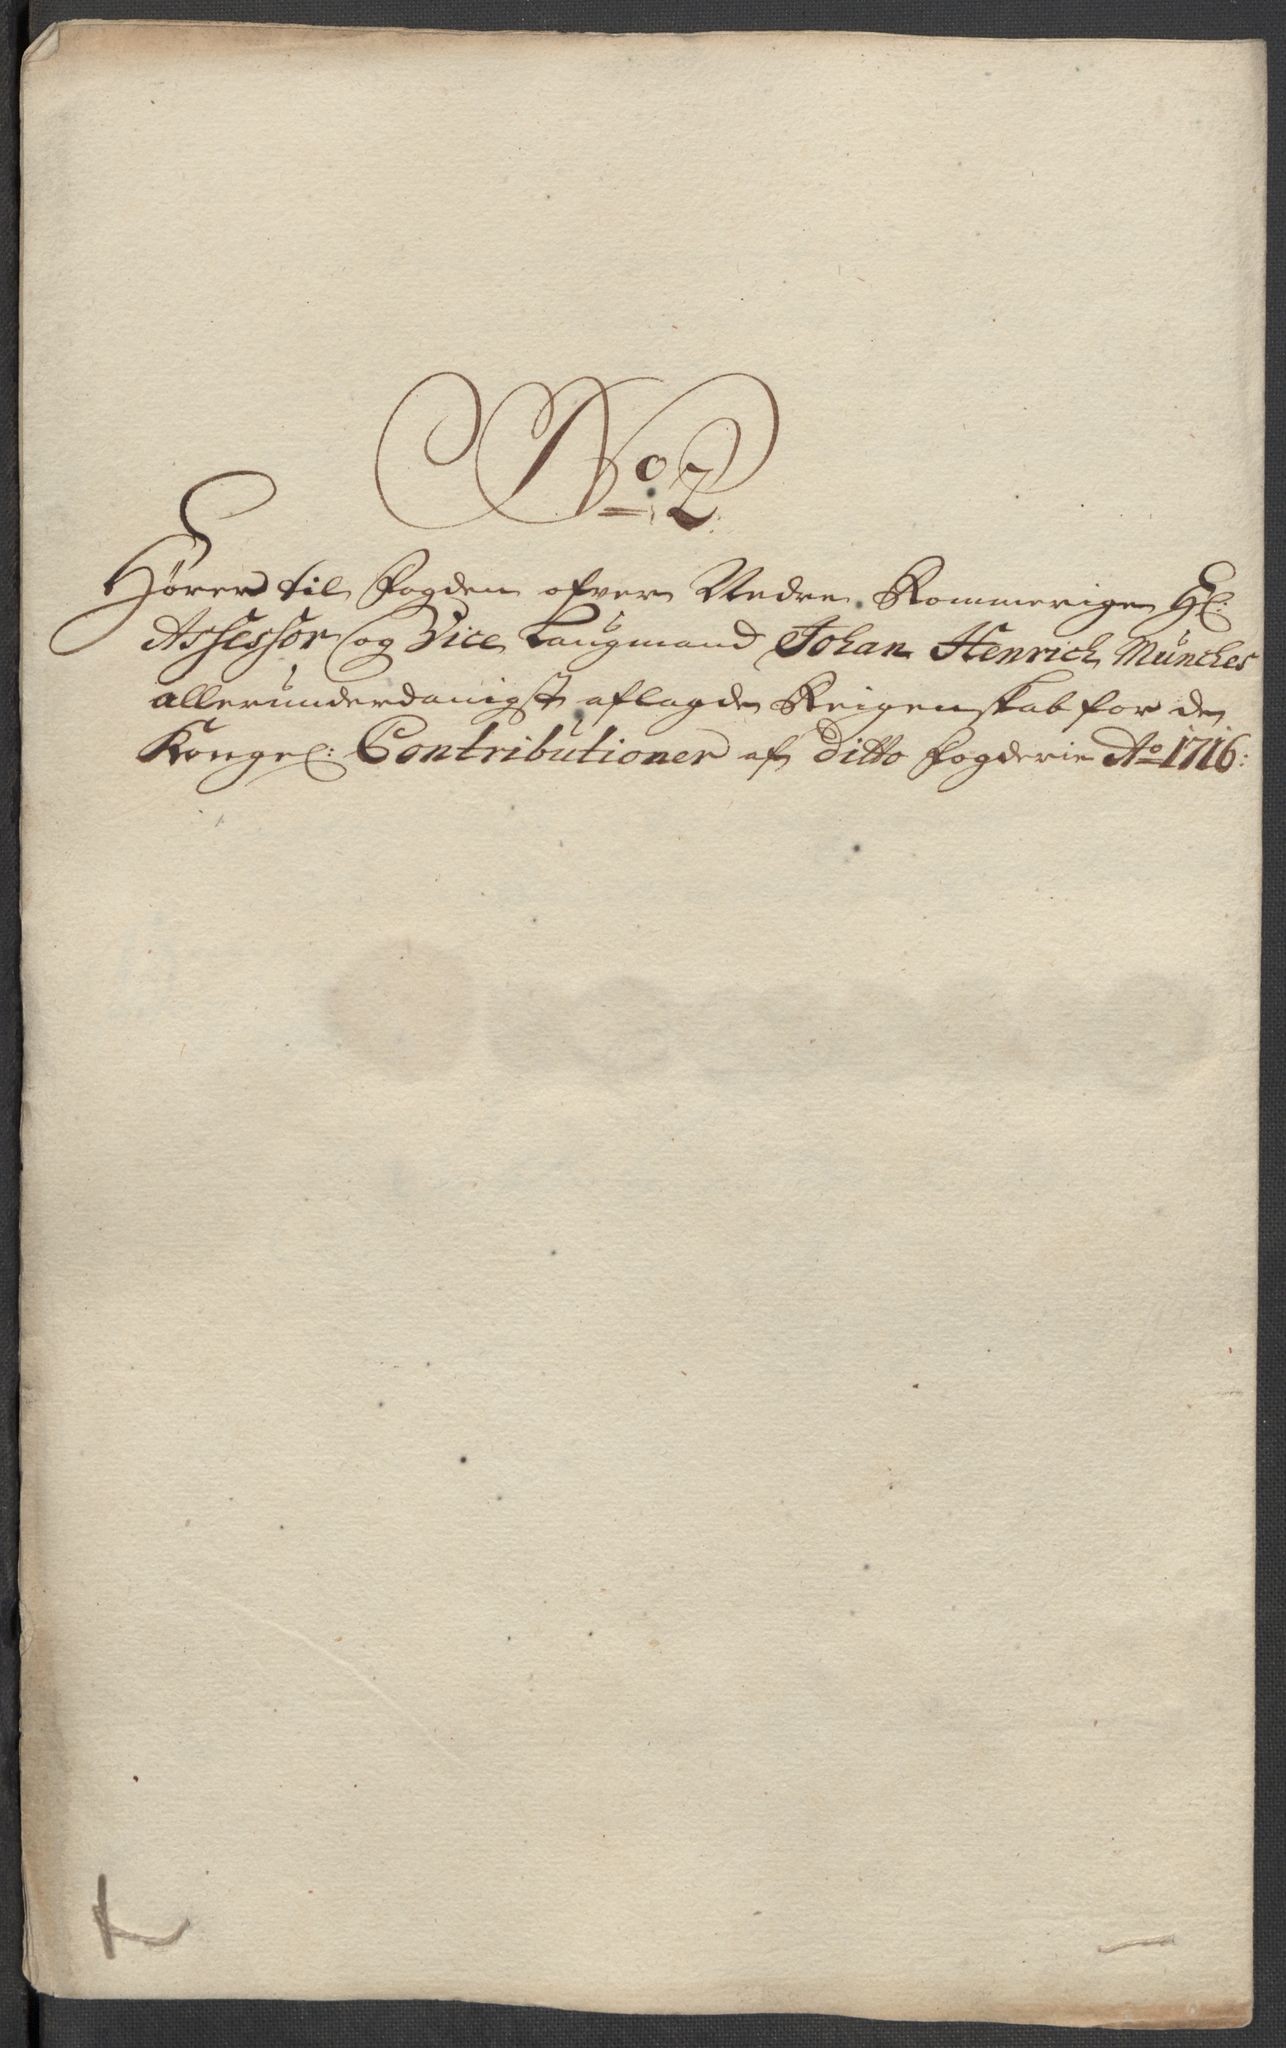 No 2.
Hører til Fogden ofver Nedre Rommerige Hl:
Assessor og Vice Laugmand Johan Henrich Münches
allerunderdanigst aflagde Reigenskab for de
Kongel: Contributioner af ditto Fogderie Ao 1716: